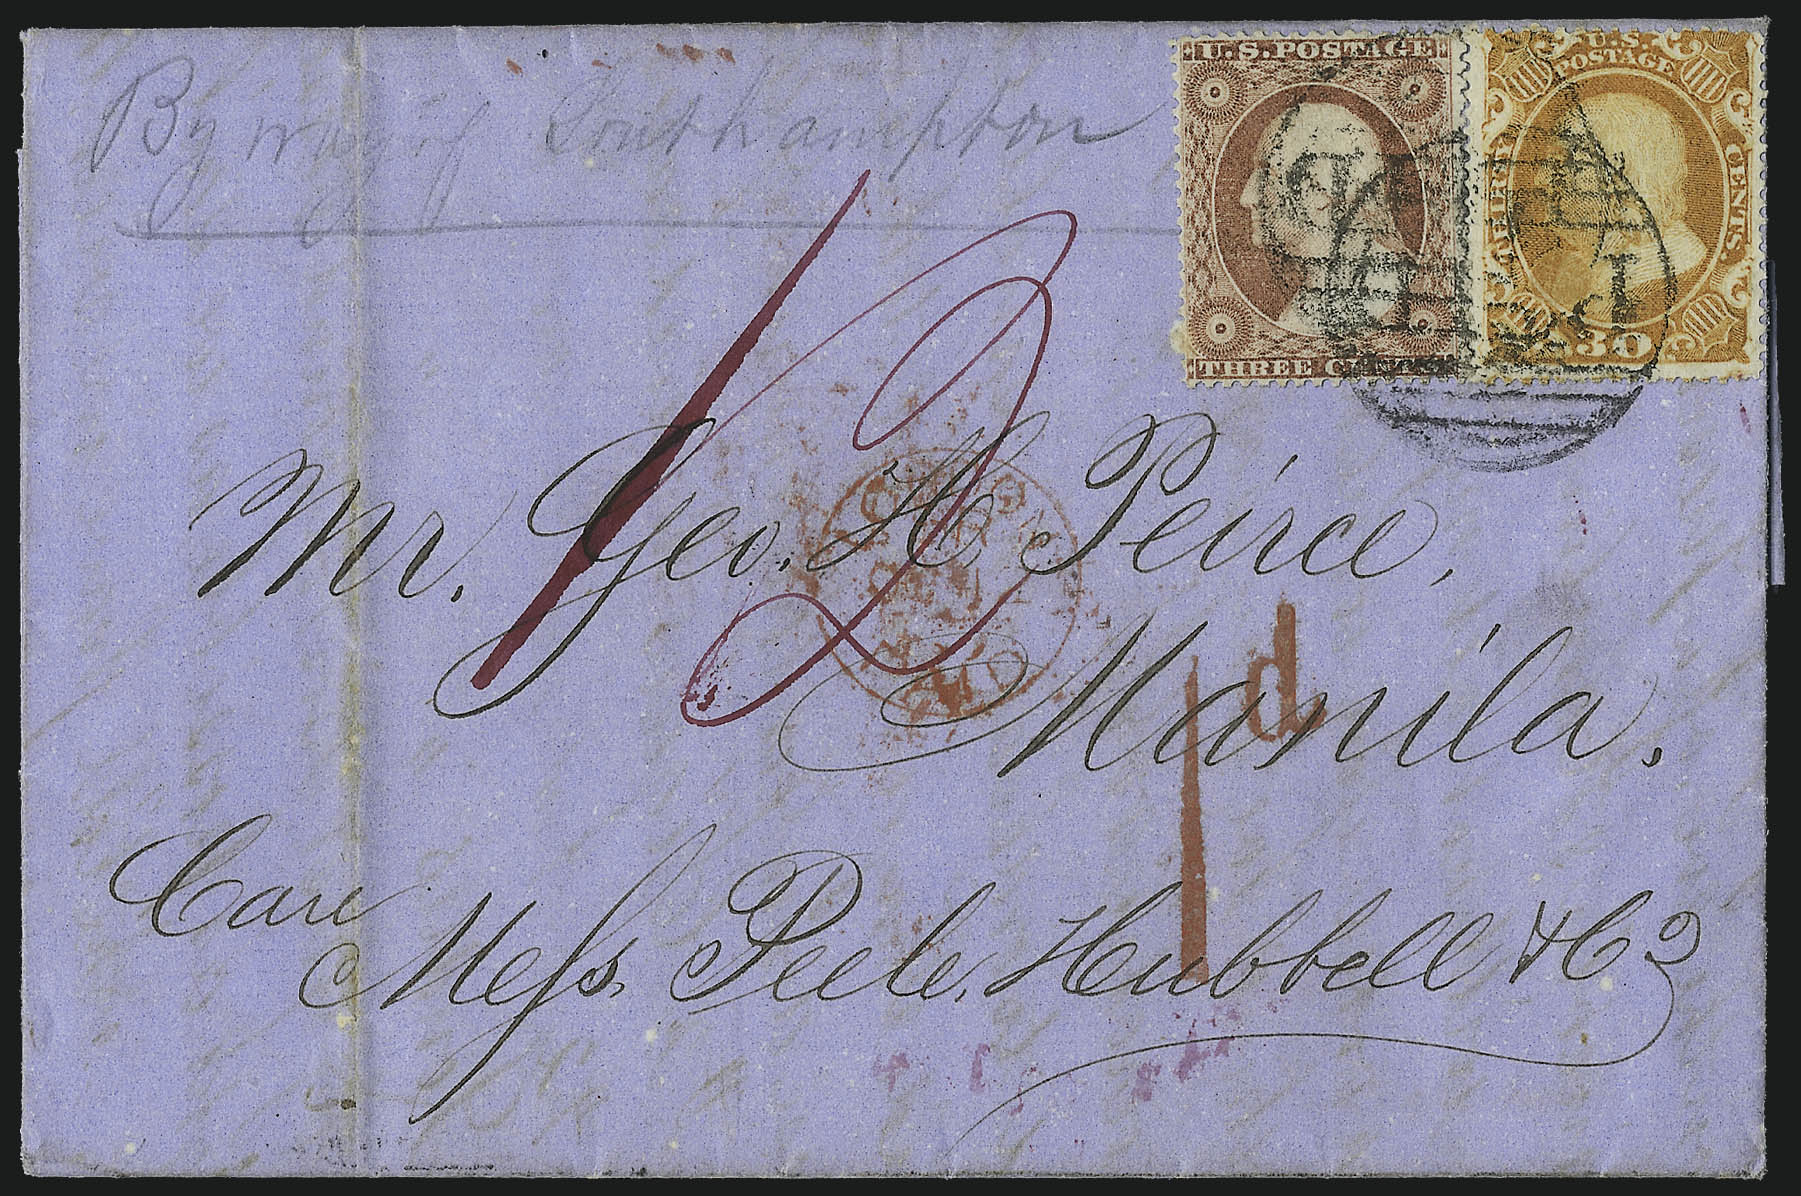 By way of Southampton
U.S. POSTAGE
THREE CENTS
U.S.
POSTAGE
THIRTY
CENTS.
30
PAID
12
Mr. Geo. H. Peirce,
LONDON
PAID
1d
Manila.
Care
Mess. Peele, Hubbell & Co